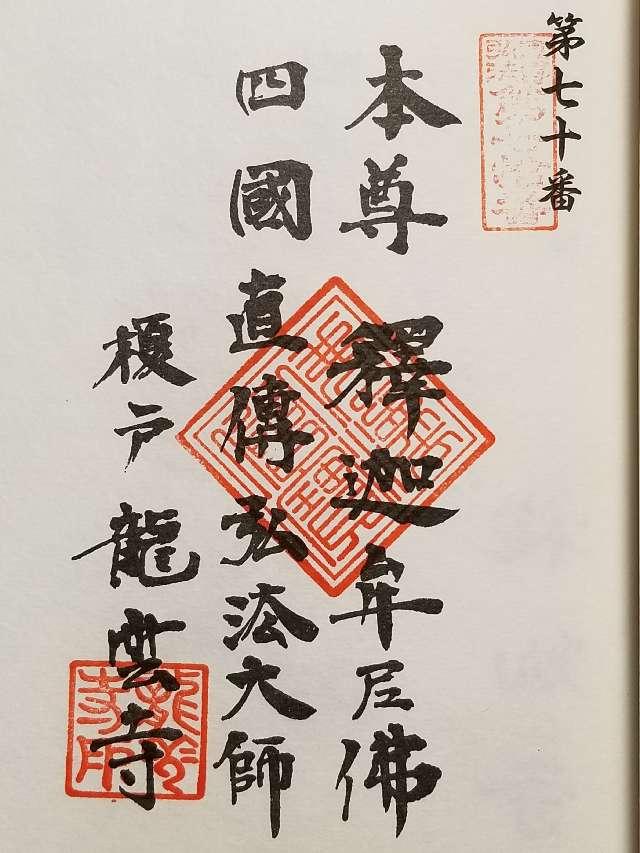 第七十番
本尊 釋迦牟尼佛
四國直傳弘法大師
榎戸 龍雲寺